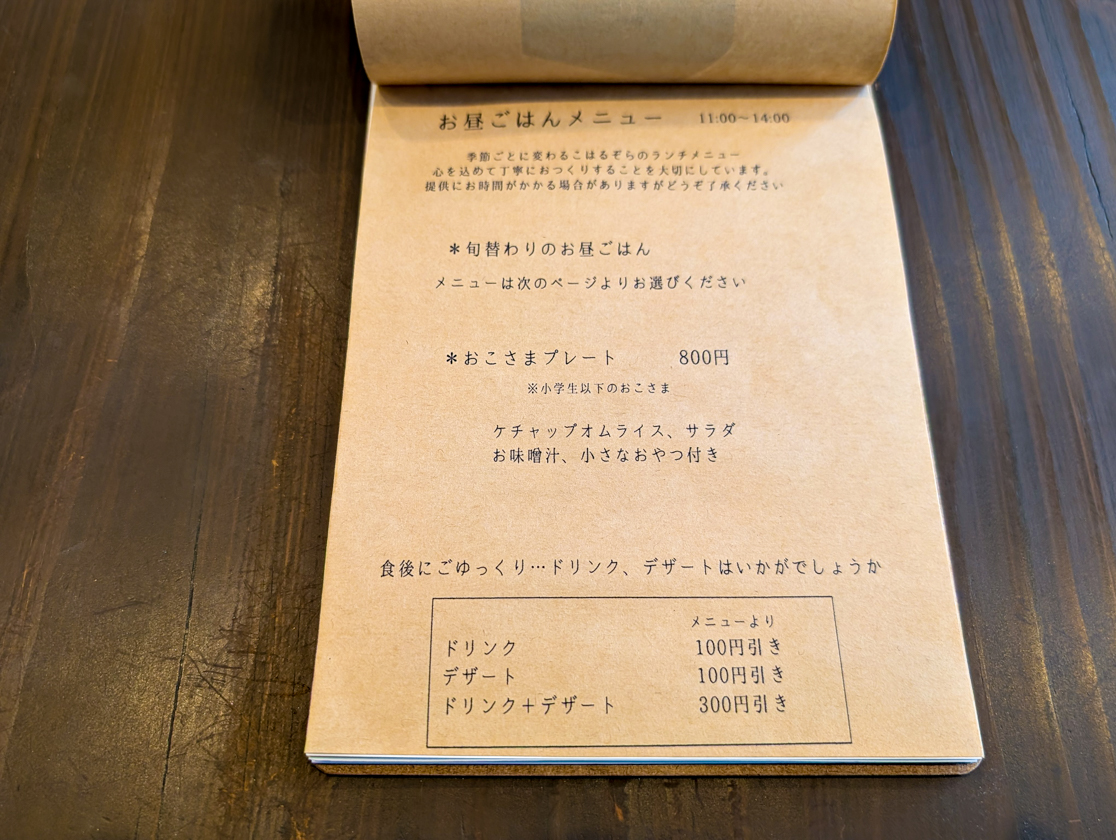 お昼ごはんメニュー 11:00～14:00
季節ごとに変わるこはるぞらのランチメニュー
心を込めて丁寧におつくりすることを大切にしています。
提供にお時間がかかる場合がありますがどうぞ了承ください
＊旬替わりのお昼ごはん
メニューは次のページよりお選びください
＊おこさまプレート 800円
※小学生以下のおこさま
ケチャップオムライス、サラダ
お味噌汁、小さなおやつ付き
食後にごゆっくり…ドリンク、デザートはいかがでしょうか
メニューより
ドリンク 100円引き
デザート 100円引き
ドリンク＋デザート 300円引き